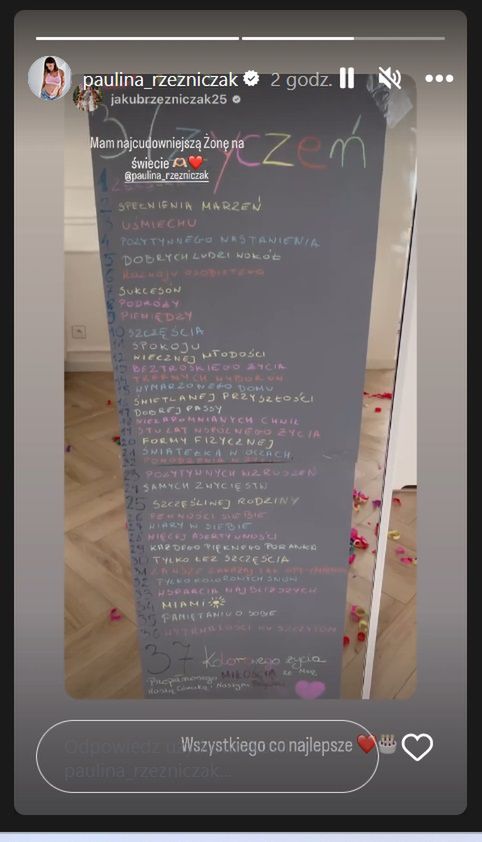 paulina_rzezniczak 2 godz.
jakubrzezniczak25
37 życzeń
Mam najcudowniejszą Żonę na
świecie 🫶🏻❤️
@paulina_rzezniczak
1
2 SPEŁNIENIA MARZEŃ
3 UŚMIECHU
4 POZYTYWNEGO NASTAWIENIA
5 DOBRYCH LUDZI WOKÓŁ
6 ROZWOJU OSOBISTEGO
7 SUKCESÓW
8 PODRÓŻY
9 PIENIĘDZY
10 SZCZĘŚCIA
11 SPOKOJU
12 WIECZNEJ MŁODOŚCI
13 BEZTROSKIEGO ŻYCIA
14 TRAFNYCH WYBORÓW
15 WYMARZONEGO DOMU
16 ŚWIETLANEJ PRZYSZŁOŚCI
17 DOBREJ PASSY
18 NIEZAPOMNIANYCH CHWIL
19 STU LAT WSPÓLNEGO ŻYCIA
20 FORMY FIZYCZNEJ
21 ŚWIATEŁKA W OCZACH
22 POWODZENIA
23 POZYTYWNYCH WZRUSZEŃ
24 SAMYCH ZWYCIĘSTW
25 SZCZĘŚLIWEJ RODZINY
26 PEWNOŚCI SIEBIE
27 WIARY W SIEBIE
28 WIĘCEJ ASERTYWNOŚCI
29 KAŻDEGO PIĘKNEGO PORANKA
30 TYLKO ŁEZ SZCZĘŚCIA
31
32 TYLKO KOLOROWYCH SNÓW
33 WSPARCIA NAJBLIŻSZYCH
34 MIAMI
35 PAMIĘTANIU O SOBIE
36 WYTRWAŁOŚCI KU SZCZYTOM
37 Kolorowego życia
MIŁOŚCIĄ
Wszystkiego co najlepsze ❤️🎂
Odpowiedz
paulina_rzezniczak...